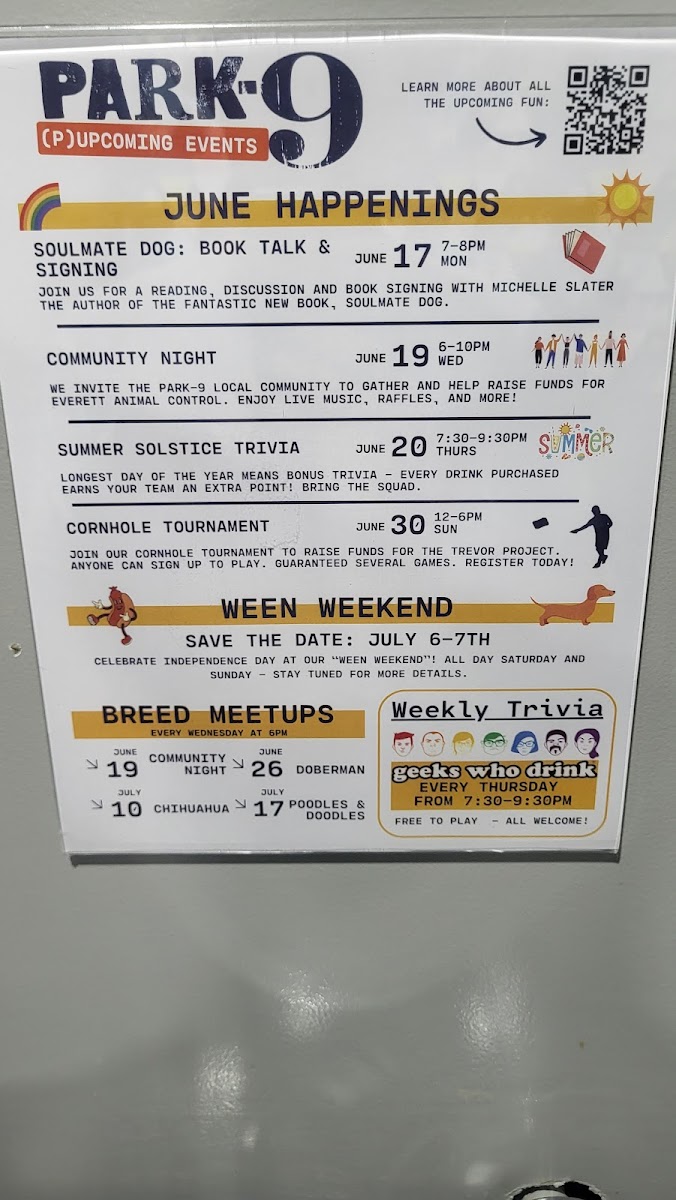 PARK-9
(P)UPCOMING EVENTS
LEARN MORE ABOUT ALL
THE UPCOMING FUN:
JUNE HAPPENINGS
SOULMATE DOG: BOOK TALK &
SIGNING
JUNE 17 7-8PM
MON
JOIN US FOR A READING, DISCUSSION AND BOOK SIGNING WITH MICHELLE SLATER
THE AUTHOR OF THE FANTASTIC NEW BOOK, SOULMATE DOG.
COMMUNITY NIGHT
JUNE 19 6-10PM
WED
WE INVITE THE PARK-9 LOCAL COMMUNITY TO GATHER AND HELP RAISE FUNDS FOR
EVERETT ANIMAL CONTROL. ENJOY LIVE MUSIC, RAFFLES, AND MORE!
SUMMER SOLSTICE TRIVIA
JUNE 20 7:30-9:30PM
THURS
SUMMER
LONGEST DAY OF THE YEAR MEANS BONUS TRIVIA - EVERY DRINK PURCHASED
EARNS YOUR TEAM AN EXTRA POINT! BRING THE SQUAD.
CORNHOLE TOURNAMENT
JUNE 30 12-6PM
SUN
JOIN OUR CORNHOLE TOURNAMENT TO RAISE FUNDS FOR THE TREVOR PROJECT.
ANYONE CAN SIGN UP TO PLAY. GUARANTEED SEVERAL GAMES. REGISTER TODAY!
WEEN WEEKEND
SAVE THE DATE: JULY 6-7TH
CELEBRATE INDEPENDENCE DAY AT OUR "WEEN WEEKEND"! ALL DAY SATURDAY AND
SUNDAY - STAY TUNED FOR MORE DETAILS.
BREED MEETUPS
EVERY WEDNESDAY AT 6PM
JUNE
19 COMMUNITY
NIGHT
JUNE
26 DOBERMAN
JULY
10 CHIHUAHUA
JULY
17 POODLES &
DOODLES
Weekly Trivia
geeks who drink
EVERY THURSDAY
FROM 7:30-9:30PM
FREE TO PLAY - ALL WELCOME!